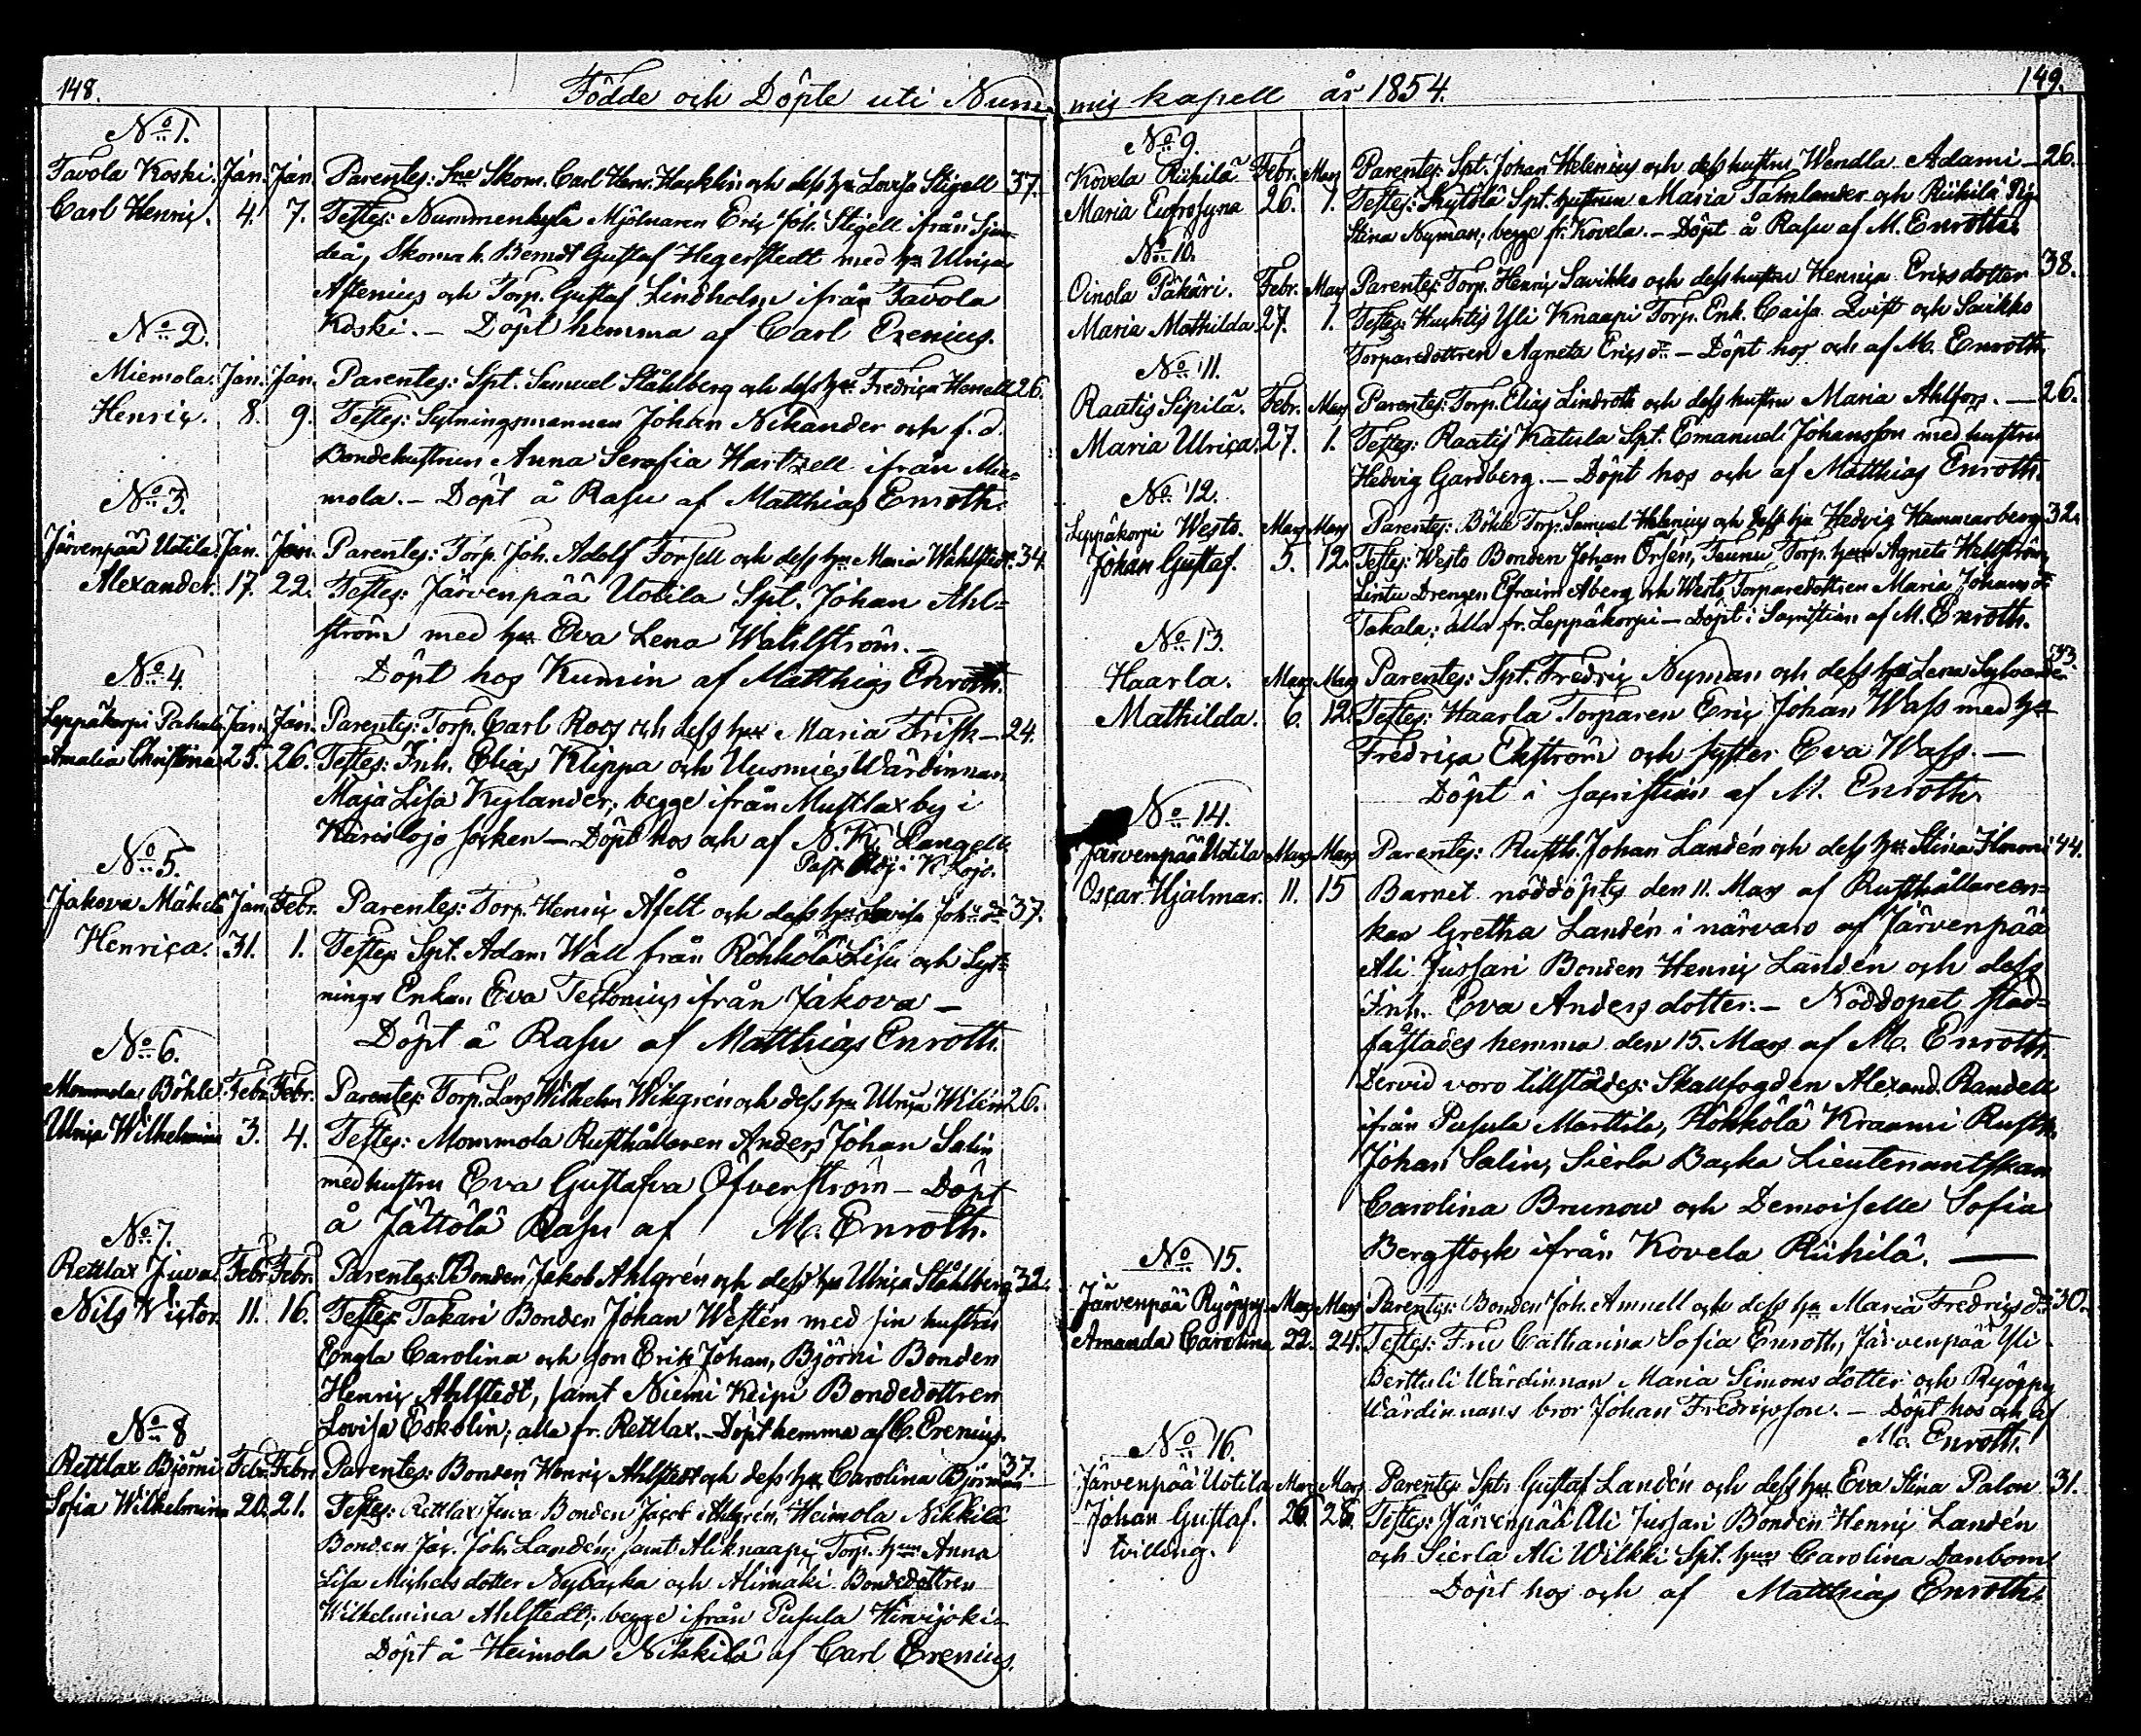 148.
Födde och Döpte uti Nummis kapell år 1854.
149.
No 1.
Tavola Koski. Jan. Jan. Parentes: Sne Skom. Carl Henr. Hacklin och dess hu Lovisa Stigell 37.
Carl Henric. 4. 7. Testes: Nummenkylä Mjölnaren Eric Joh. Stigell ifrån Sjun-
deå, Skomak. Berndt Gustaf Hegerstedt med hu Ulrica
Astenius och Torp. Gustaf Lindholm ifrån Tavola
Koski. – Döpt hemma af Carl Erenius.
No 2.
Miemola. Jan. Jan. Parentes: Spt. Samuel Ståhlberg och dess hu Fredrica Henell 26.
Henric. 8. 9. Testes: Sytningsmannen Johan Nikander och f. d.
Bondehustrun Anna Serafia Hartzell ifrån Mie-
mola. – Döpt å Rasu af Matthias Enroth.
No 3.
Järvenpää Uotila. Jan. Jan. Parentes: Torp. Joh. Adolf Forsell och dess hu Maria Wahlstedt. 34.
Alexander. 17. 22. Testes: Järvenpää Uotila Spt. Johan Ahl-
ström med hu Eva Lena Wahlström. –
Döpt hos Kumin af Matthias Enroth.
No 4.
Leppäkorpi Pahala Jan. Jan. Parentes: Torp. Carl Roos och dess hu Maria Frisk – 24.
Amalia Christina 25. 26. Testes: Inh. Elias Klippa och Uusmies Wärdinnan
Maja Lisa Kylander, begge ifrån Mustlax by i
Karislojo socken – Döpt hos och af N. K. Langell
Past. Adj. i K. Lojo.
No 5.
Jakova Mäkelä Jan. Febr. Parentes: Torp. Henric Afelt och dess hu Lovisa Joh. dr 37.
Henrica. 31. 1. Testes Spt. Adam Wall från Röhkölä Lisu och Syt-
nings Enkan Eva Tectonius ifrån Jakova –
Döpt å Rasu af Matthias Enroth.
No 6.
Mommola Böhle. Febr. Febr. Parentes: Torp. Lars Wilhelm Wikgrén och dess hu Ulrica Wilén 26.
Ulrica Wilhelmina 3. 4. Testes: Mommola Rusthållaren Anders Johan Salin
med hustru Eva Gustafva Öfverström – Döpt
å Jättölä Rasu af M. Enroth.
No 7.
Rettlax Juva. Febr. Febr. Parentes: Bonden Jakob Ahlgrén och dess hu Ulrica Ståhlberg 32.
Nils Victor. 11. 16. Testes Takari Bonden Johan Westén med sin hustru
Engla Carolina och son Erik Johan, Björni Bonden
Henric Ahlstedt, samt Niemi Keipi Bondedottren
Lovisa Eskolin, alla fr. Rettlax. – Döpt hemma af C. Erenius.
No 8
Rettlax Björni Febr. Febr. Parentes: Bonden Henric Ahlstedt och dess hu Carolina Björman 37.
Sofia Wilhelmina 20. 21. Testes: Rettlax Juva Bonden Jacob Ahlgrén, Heimola Nikkilä
Bonden Jac. Joh. Landén, samt Aliknaapi Torp. hun Anna
Lisa Michels dotter Nybacka och Alimäki Bondedottren
Wilhelmina Ahlstedt, begge ifrån Pusula Hirvijoki –
Döpt å Heimola Nikkilä af Carl Erenius.
No 9.
Kovela Riihilä Febr. Mars Parentes: Spt. Johan Helenius och dess hustru Wendla Adami – 26.
Maria Eufrosyna 26. 1. Testes: Skytölä Spt. hustrun Maria Tamlander och Riihilä Pig.
Stina Nyman, begge fr. Kovela. – Döpt å Rasu af M. Enroth.
No 10.
Oinola Päkäri. Febr. Mars Parentes: Torp. Henric Savikko och dess hustru Henrica Ericsdotter 38.
Maria Mathilda 27. 1. Testes: Huhtis Yli Knaapi Torp. Enk. Caisa Qvist och Savikko
Torparedottren Agneta Erics dr – Döpt hos och af M. Enroth.
No 11.
Raatis Sipilä. Febr. Mars Parentes: Torp. Elias Lindroth och dess hustru Maria Ahlfors. – 26.
Maria Ulrica. 27. 1. Testes: Raatis Katula Spt. Emanuel Johansson med hustru
Hedvig Gardberg. – Döpt hos och af Matthias Enroth.
No 12.
Leppäkorpi Westo. Mars Mars Parentes: Böhle Torp. Samuel Helenius och dess hu Hedvig Hammarberg 32.
Johan Gustaf. 5. 12. Testes: Westo Bonden Johan Orsén, Teunu Torp. hun Agneta Hellström
Lintu Drengen Efraim Åberg och Westo Torparedottren Maria Johans dr
Takala; alla fr. Leppäkorpi – Döpt i Sacristian af M. Enroth.
No 13.
Haarla. Mars Mars Parentes: Spt. Fredric Nyman och dess hu Lena Sylvander 33.
Mathilda. 6. 12. Testes: Haarla Torparen Eric Johan Wass med hu
Fredrica Ekström och syster Eva Wass. –
Döpt i sacristian af M. Enroth.
No 14.
Järvenpää Uotila Mars Mars Parentes: Rusth. Johan Landén och dess hu Stina Himmi 44.
Oscar Hjalmar. 11. 15 Barnet nöddöptes den 11. Mars af Rusthållareen-
kan Gretha Landén i närvaro af Järvenpää
Ali Jussari Bonden Henric Landén och dess
Inh. Eva Anders dotter. – Nöddopet stad-
fästades hemma den 15. Mars af M. Enroth.
Dervid voro tillstädes: Skallfogden Alexand. Randell
ifrån Pusula Marttila, Röhkölä Kraami Rusth.
Johan Salin, Sierla Backa Lieutenantskan
Carolina Brunow och Demoiselle Sofia
Bergstock ifrån Kovela Riihilä. –
No 15.
Järvenpää Ryöppy. Mars Mars Parentes: Bonden Joh. Amnell och dess hu Maria Fredrics dr 30.
Amanda Carolina 22. 24. Testes: Fru Catharina Sofia Enroth, Järvenpää Yli
Berttuli Wärdinnan Maria Simons dotter och Ryöppy
Wärdinnans bror Johan Fredricsson. – Döpt hos och af
M. Enroth.
No 16.
Järvenpää Uotila Mars Mars Parentes Spt. Gustaf Landén och dess hu Eva Stina Palon 31.
Johan Gustaf. 26. 28. Testes: Järvenpää Ali Jussari Bonden Henric Landén
tvilling. och Sierla Ali Wilkki Spt. hun Carolina Danbom
Döpt hos och af Matthias Enroth.